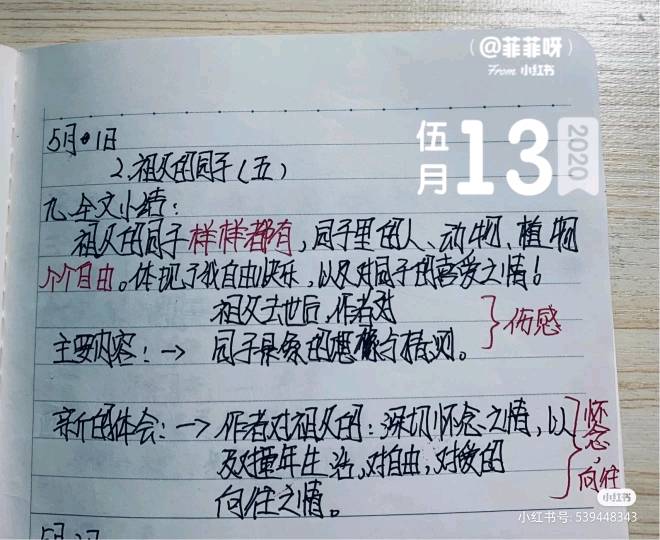 (@菲菲呀)
From 小红书
伍月13 2020
5月1日
2.祖父的园子(五)
九、全文小结：
祖父的园子样样都有，园子里的人、动物、植物
个个自由。体现了我自由快乐，以及对园子的喜爱之情！
祖父去世后，作者对
主要内容：→ 园子景象的想像与猜测。
}伤感
新的体会：→ 作者对祖父的：深切怀念之情，以
及对童年生活，对自由，对爱的
向往之情。
}怀念，向往
小红书
小红书号: 539448343